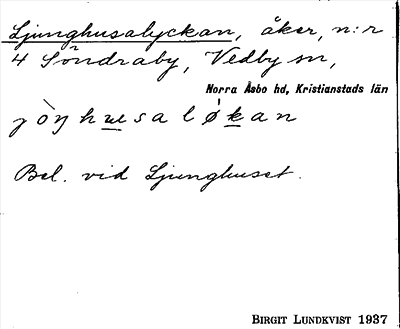 Ljunghusalyckan, åker, n:r
4 Söndraby, Vedby sn,
Norra Åsbo hd, Kristianstads län
Bel. vid Ljunghuset.
BIRGIT LUNDKVIST 1937